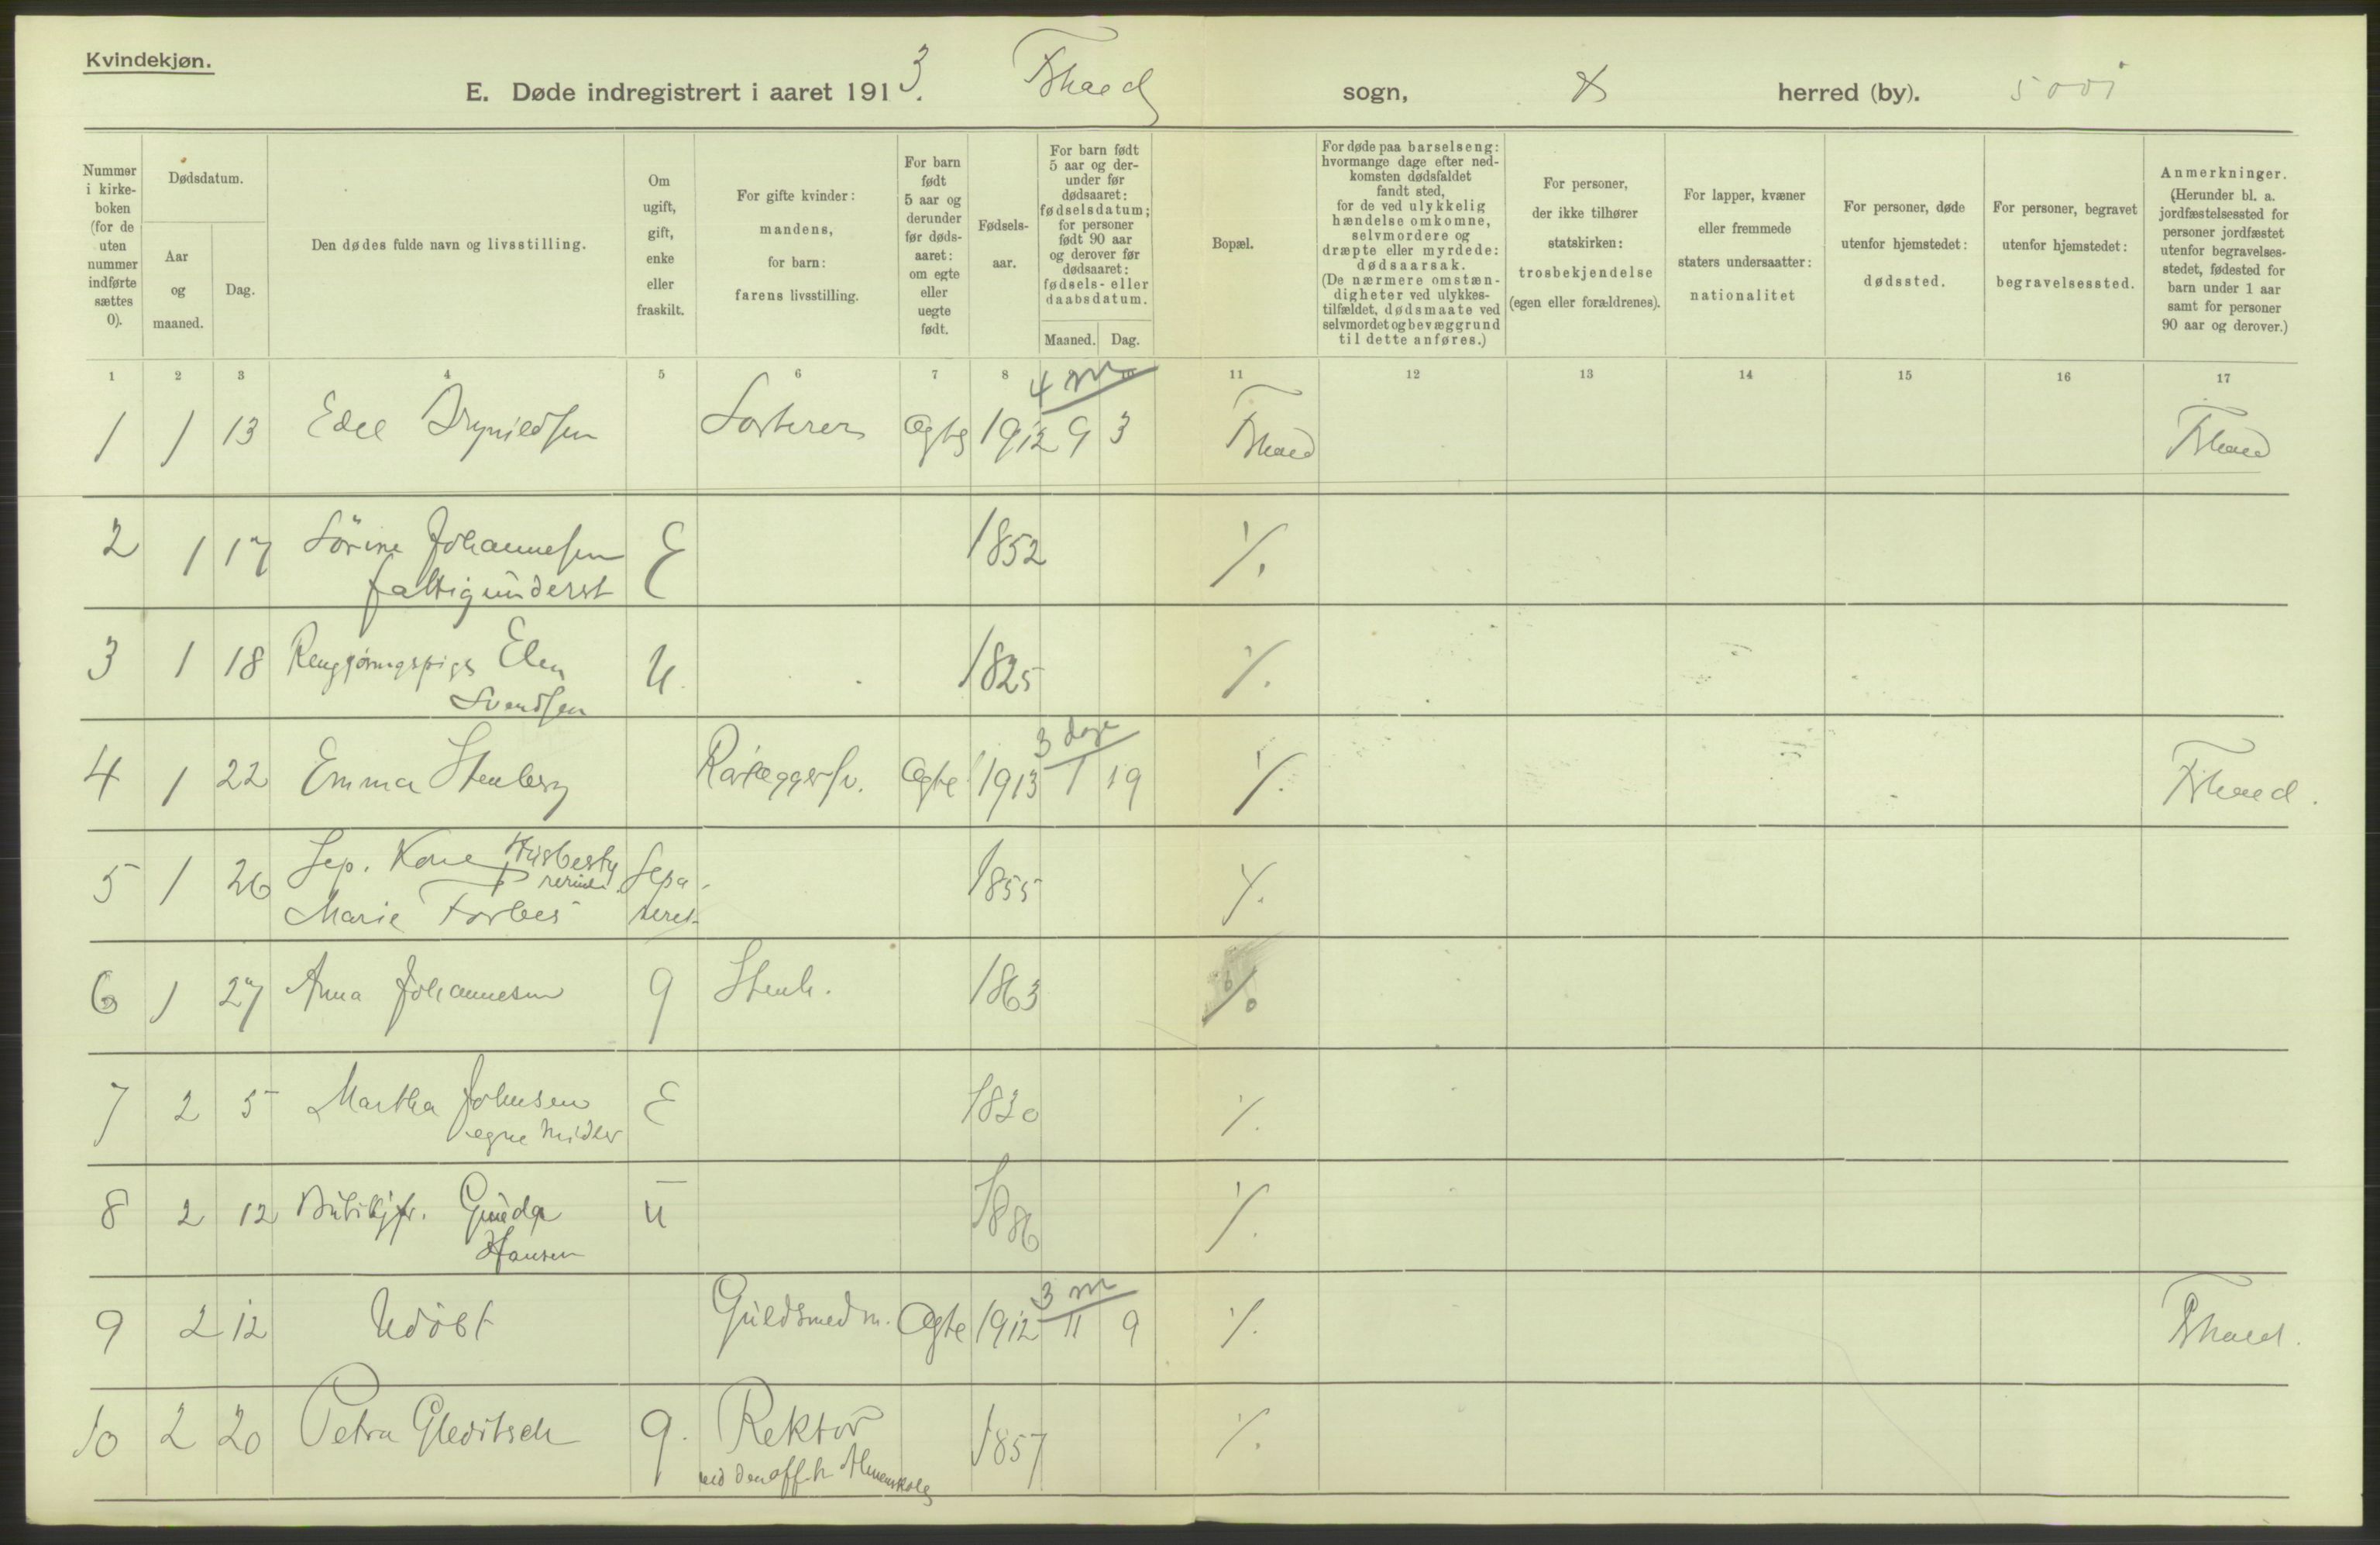 Kvindekjøn.
E. Døde indregistrert i aaret 1913. Fhald sogn, herred (by).
Nummer i kirke-boken (for de uten nummer indførte sættes 0).
Dødsdatum.
Aar og maaned.
Dag.
Den dødes fulde navn og livsstilling.
Om ugift, gift, enke eller fraskilt.
For gifte kvinder: mandens, for barn: farens livsstilling.
For barn født 5 aar og derunder før døds-aaret: om egte eller uegte født.
Fødsels-aar.
For barn født 5 aar og der-under før dødsaaret: fødselsdatum; for personer født 90 aar og derover før dødsaaret: fødsels- eller daabsdatum.
Maaned. Dag.
Bopæl.
For døde paa barselseng: hvormange dage efter ned-komsten dødsfaldet fandt sted, for de ved ulykkelig hændelse omkomne, selvmordere og dræpte eller myrdede: dødsaarsak. (De nærmere omstæn-digheter ved ulykkes-tilfældet, dødsmaate ved selvmordet og bevæggrund til dette anføres.)
For personer, der ikke tilhører statskirken: trosbekjendelse (egen eller forældrenes).
For lapper, kvæner eller fremmede staters undersaatter: nationalitet
For personer, døde utenfor hjemstedet: dødssted.
For personer, begravet utenfor hjemstedet: begravelsessted.
Anmerkninger. (Herunder bl. a. jordfæstelsessted for personer jordfæstet utenfor begravelses-stedet, fødested for barn under 1 aar samt for personer 90 aar og derover.)
1 2 3 4 5 6 7 8 10 11 12 13 14 15 16 17
4 m
1 1 13 Edel Sorterer Ægte 1912 9 3 Fhald Fhald
2 1 17 Sörine Johannesen E 1852 %
fattigunderst
3 1 18 Rengjöringspige Elen U. 1825 %
Svendsen
3 dage
4 1 22 Emma Stenberg Ægte 1913 1 19 % Fhald.
5 1 26 Sep. Kone Husbesty Sepa- 1855 %
rerinde
Marie Forbes reret
6 1 27 Anna Johannesen g Stenh. 1863 %
7 2 5 Martha Johnsen E 1830 %
egne Midler
8 2 12 Butikjfr. Gunda U 1886 %
Hansen
3 m
9 2 12 Udöbt Guldsmedm. Ægte 1912 11 9 % Fhald.
10 2 20 Petra Gleditsch g. Rektor 1857 %
ved den off. h. Almenskole